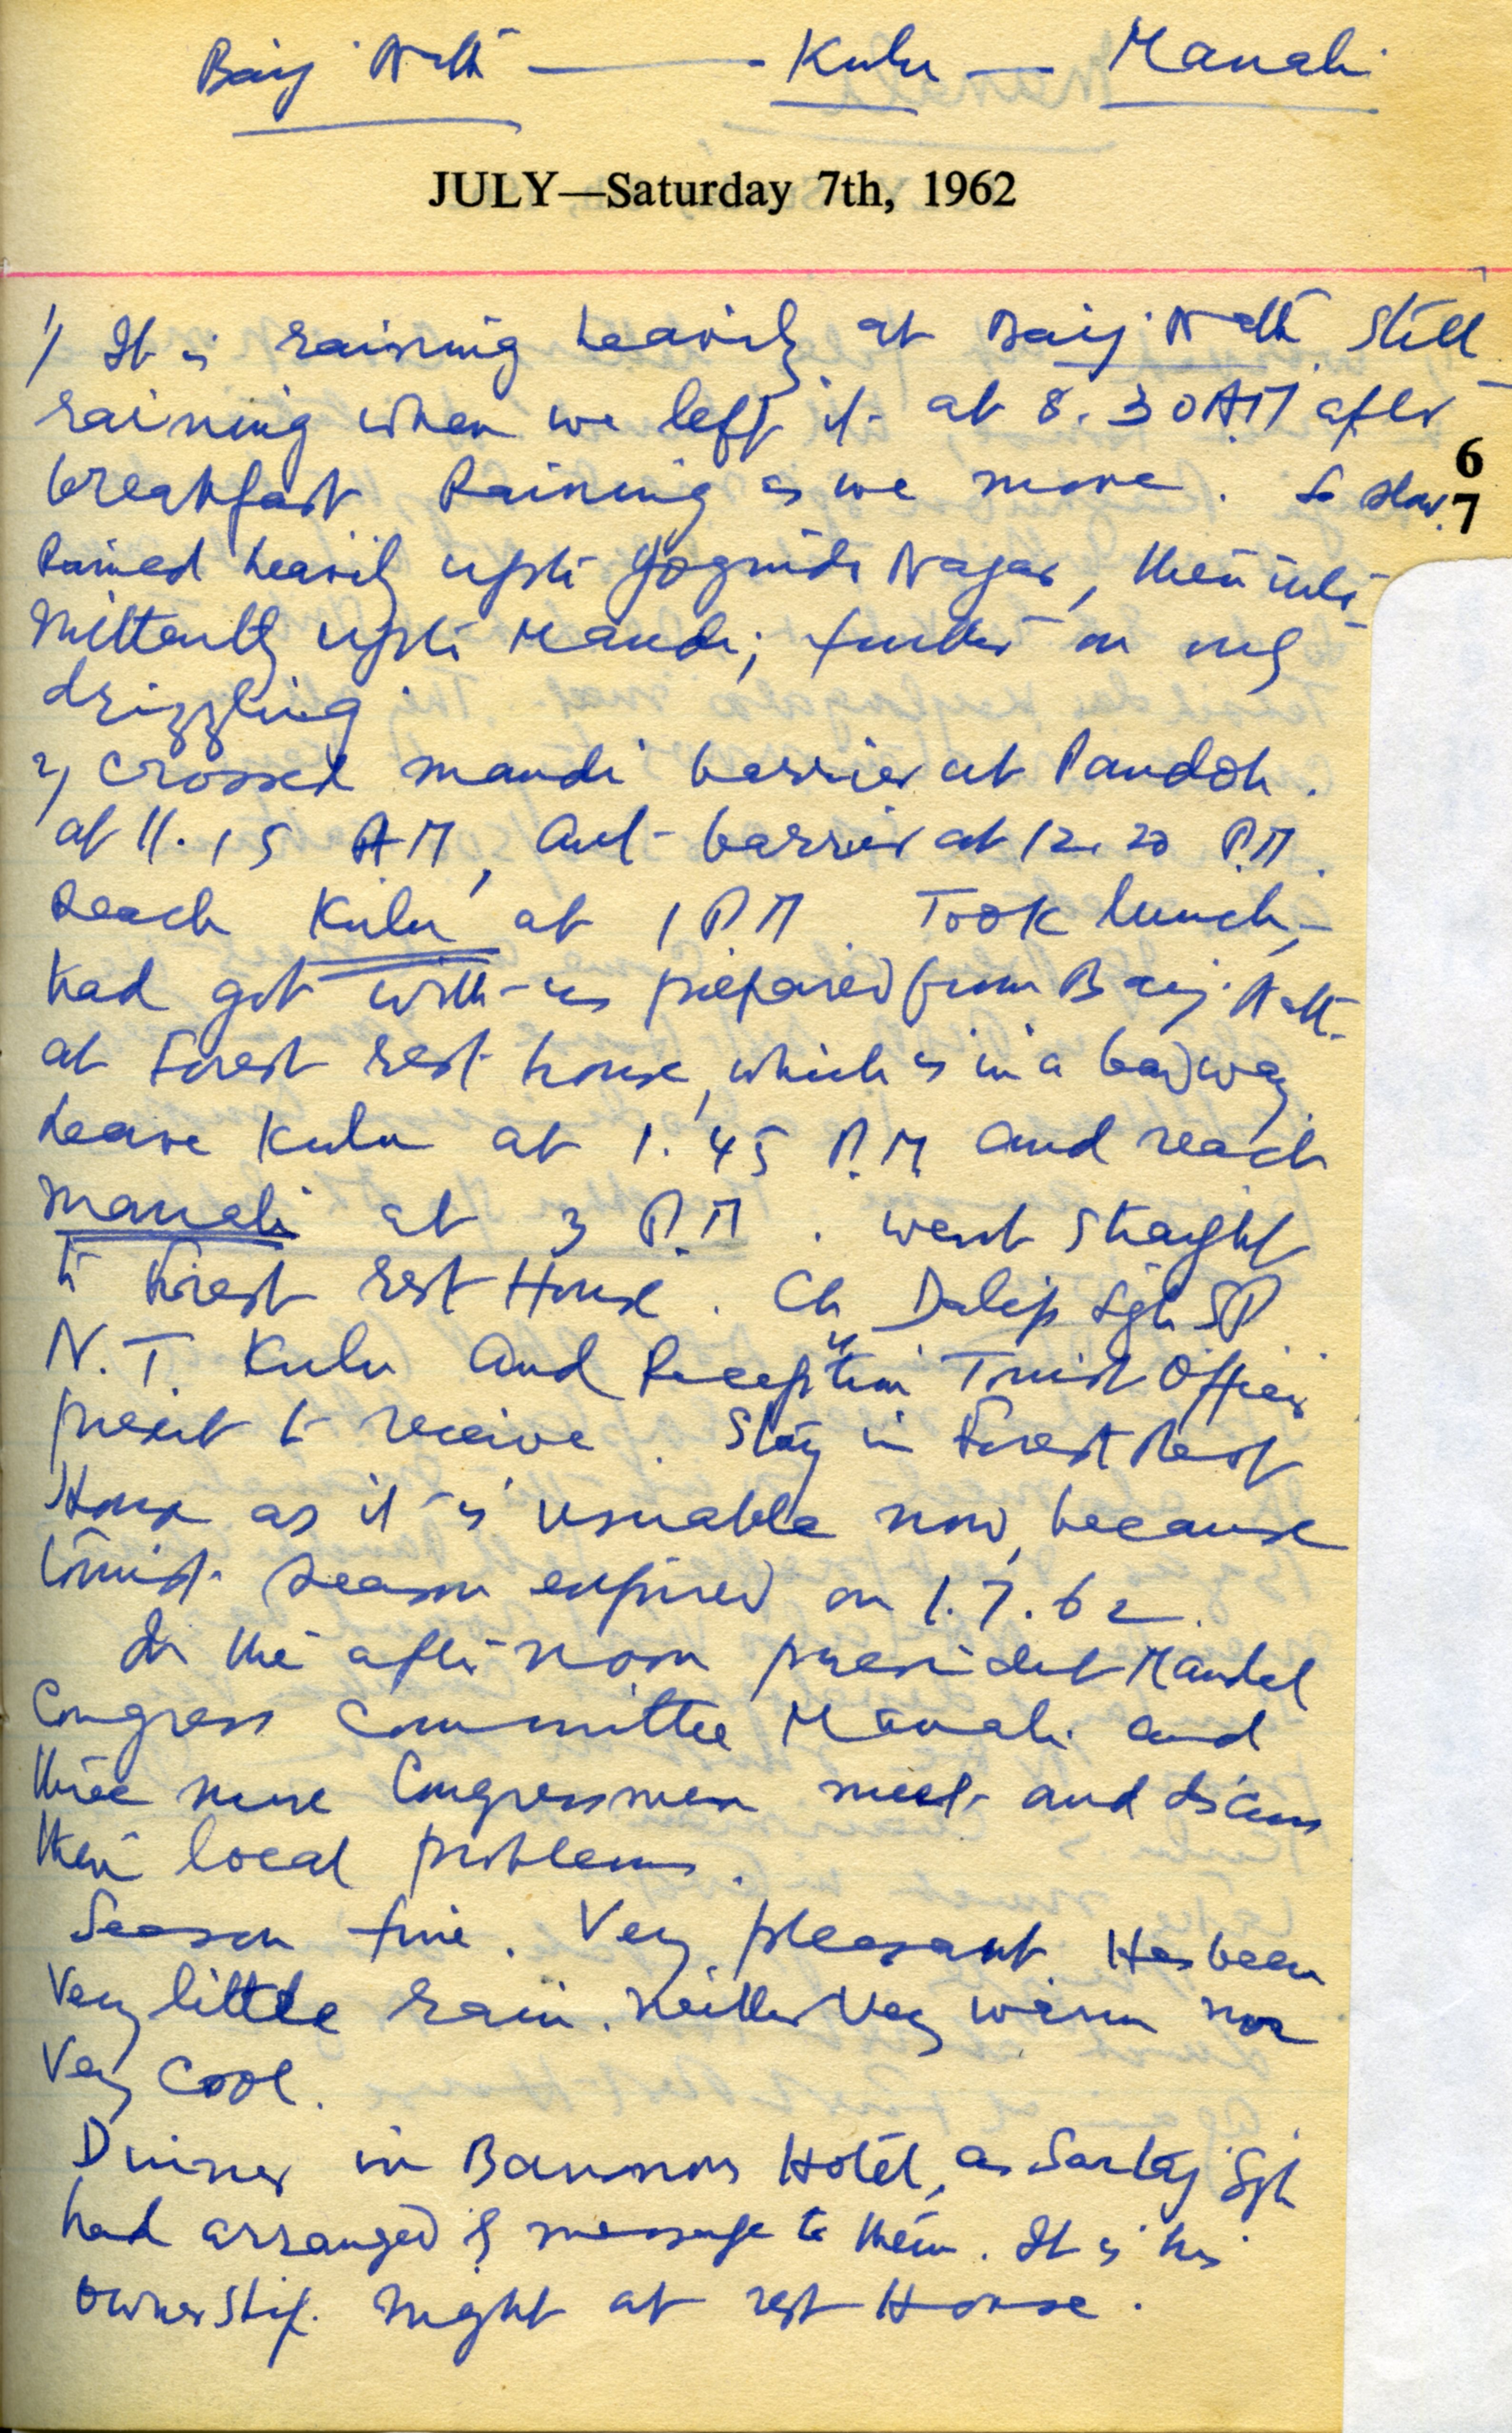 Baij Nath — Kulu — Manali
JULY—Saturday 7th, 1962
1) It is raining heavily at Baij Nath still
raining when we left it at 8.30 AM after
breakfast Raining as we move. So slow.
6
7
Rained heavily upto Jogindr Nagar, then inter
mittently upto Mandi; further on only
drizzling
2) Crossed mandi barrier at Pandoh.
at 11.15 AM, Aut barrier at 12.20 P.M.
Reach Kulu at 1 P.M. Took lunch,
had got with us prepared from Baij Nath
at Forest rest house, which is in a bad way
Leave Kulu at 1.45 P.M and reach
Manali at 3 P.M. went straight
to Forest rest House. Ch Dalip Sgh SP
N.T. Kulu and Reception Tourist Officer
present to receive. Stay in Forest Rest
House as it is usuable now, because
tourist season expired on 1.7.62.
In the after noon president Mandal
Congress Committee Manali and
three more Congressmen meet and discuss
their local problems.
Season fine. Very pleasant Has been
Very little rain. Neither Very warm nor
Very cool.
Dinner in Bannons Hotel, as Sartaj Sgh
had arranged & message to them. It is his
ownership. Night at rest House.